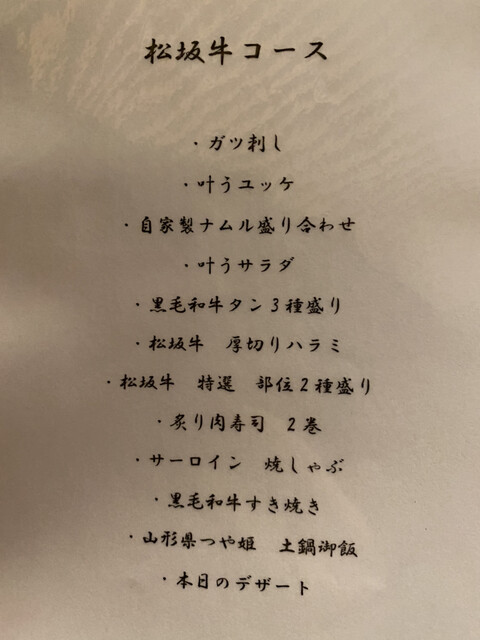 松坂牛コース
・ガツ刺し
・叶うユッケ
・自家製ナムル盛り合わせ
・叶うサラダ
・黒毛和牛タン3種盛り
・松坂牛　厚切りハラミ
・松坂牛　特選　部位2種盛り
・炙り肉寿司　2巻
・サーロイン　焼しゃぶ
・黒毛和牛すき焼き
・山形県つや姫　土鍋御飯
・本日のデザート